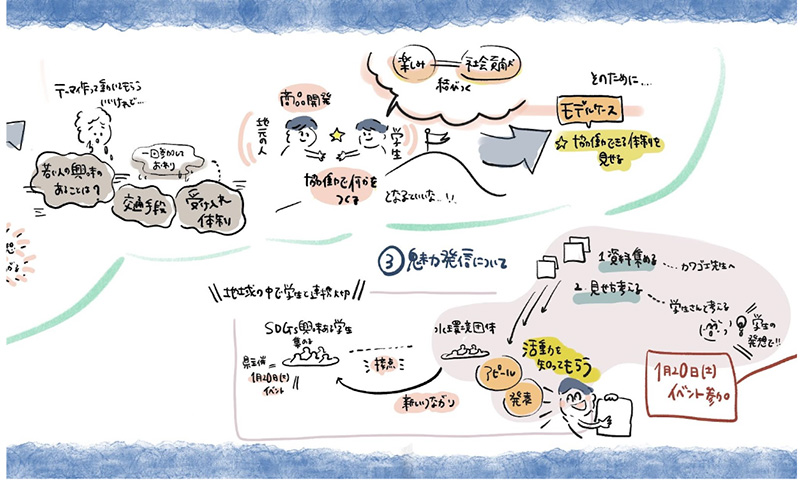 テーマ作って動いてもらう
いいけれど…
一回参加して
おわり
若い人の興味の
あることは？
交通手段
受け入れ
体制
商品開発
地元の人
学生
協働で何かを
つくる
となるといいな…!!
楽しみ
社会貢献
結びつく
そのために…
モデルケース
☆協働できる体制を
見せる
③魅力発信について
地域の中で学生と連携大切
SDGs興味ある学生
集める
県主催
1月20日(土)
イベント
接点
新しいつながり
水環境団体
活動を
知ってもらう
アピール
発表
1.資料集める
カワゴエ先生へ
2.見せ方考える
学生さんと考える
学生の
発想で!!
1月20日(土)
イベント参加。